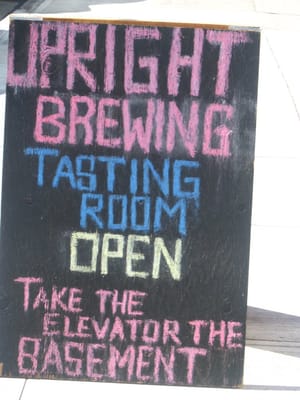 UPRIGHT
BREWING
TASTING
ROOM
OPEN
TAKE THE
ELEVATOR THE
BASEMENT